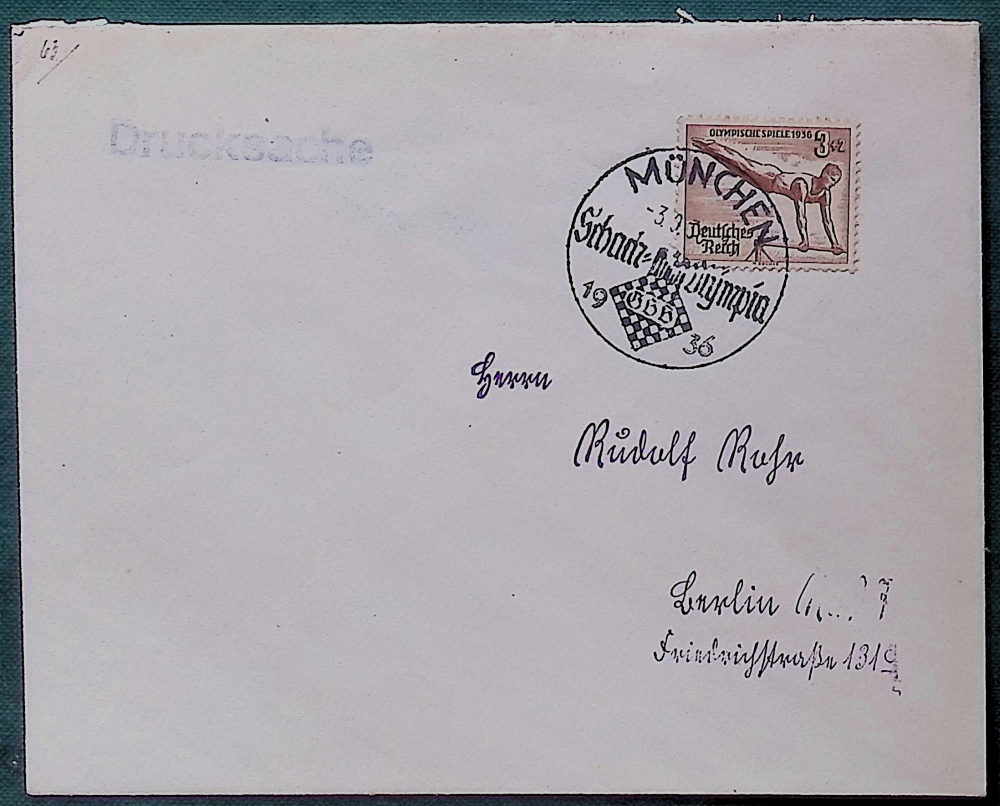 63
Drucksache
OLYMPISCHE SPIELE 1936
3+2
Deutsches
Reich
MÜNCHEN
-3.
Schach-Olympia
19 GSB 36
Herrn
Rudolf Rohr
Berlin
Friedrichstraße 131